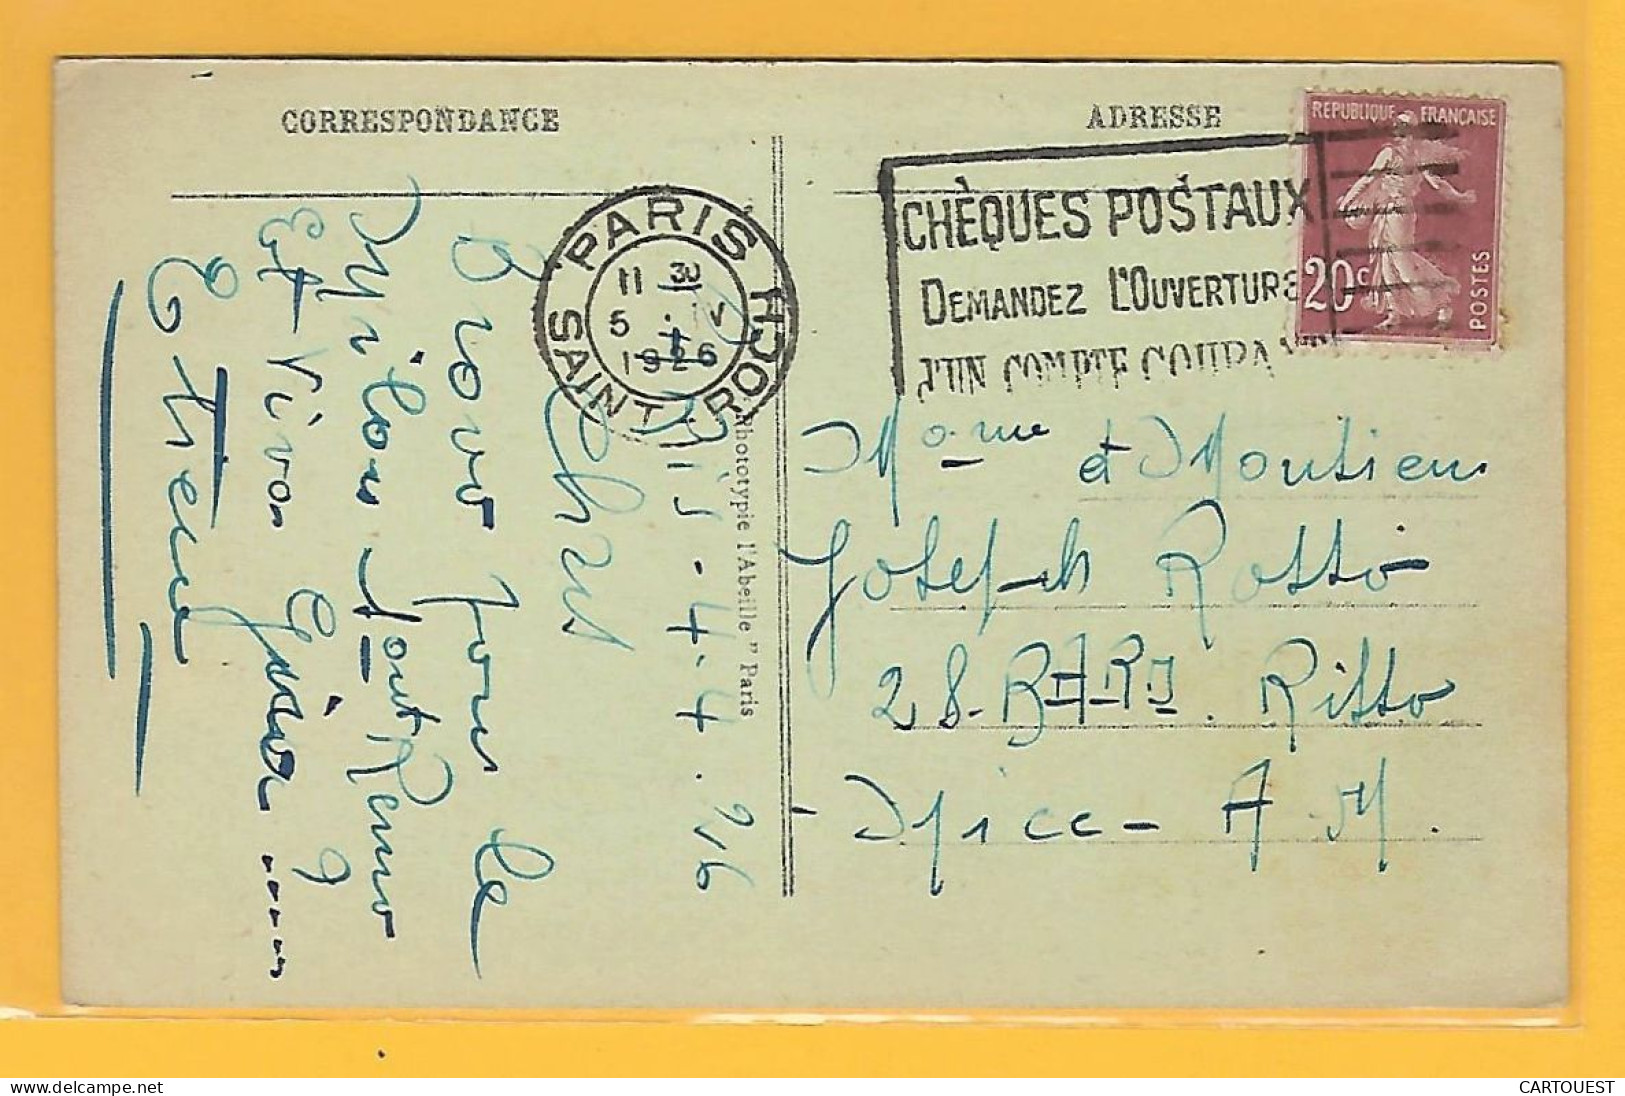 CORRESPONDANCE
ADRESSE
REPUBLIQUE FRANÇAISE
20c
POSTES
CHÈQUES POSTAUX
DEMANDEZ L'OUVERTURE
D'UN COMPTE COURANT
PARIS
11 30
5 IV
1926
SAINT-ROCH
Phototypie l'Abeille " Paris
Paris - 4.4.26
Chers
Bravo pour le
Milou
Et Viva
Mme et Monsieur
Joseph Rosso
28. Ritto
Nice - A.M.
www.delcampe.net
CARTOUEST